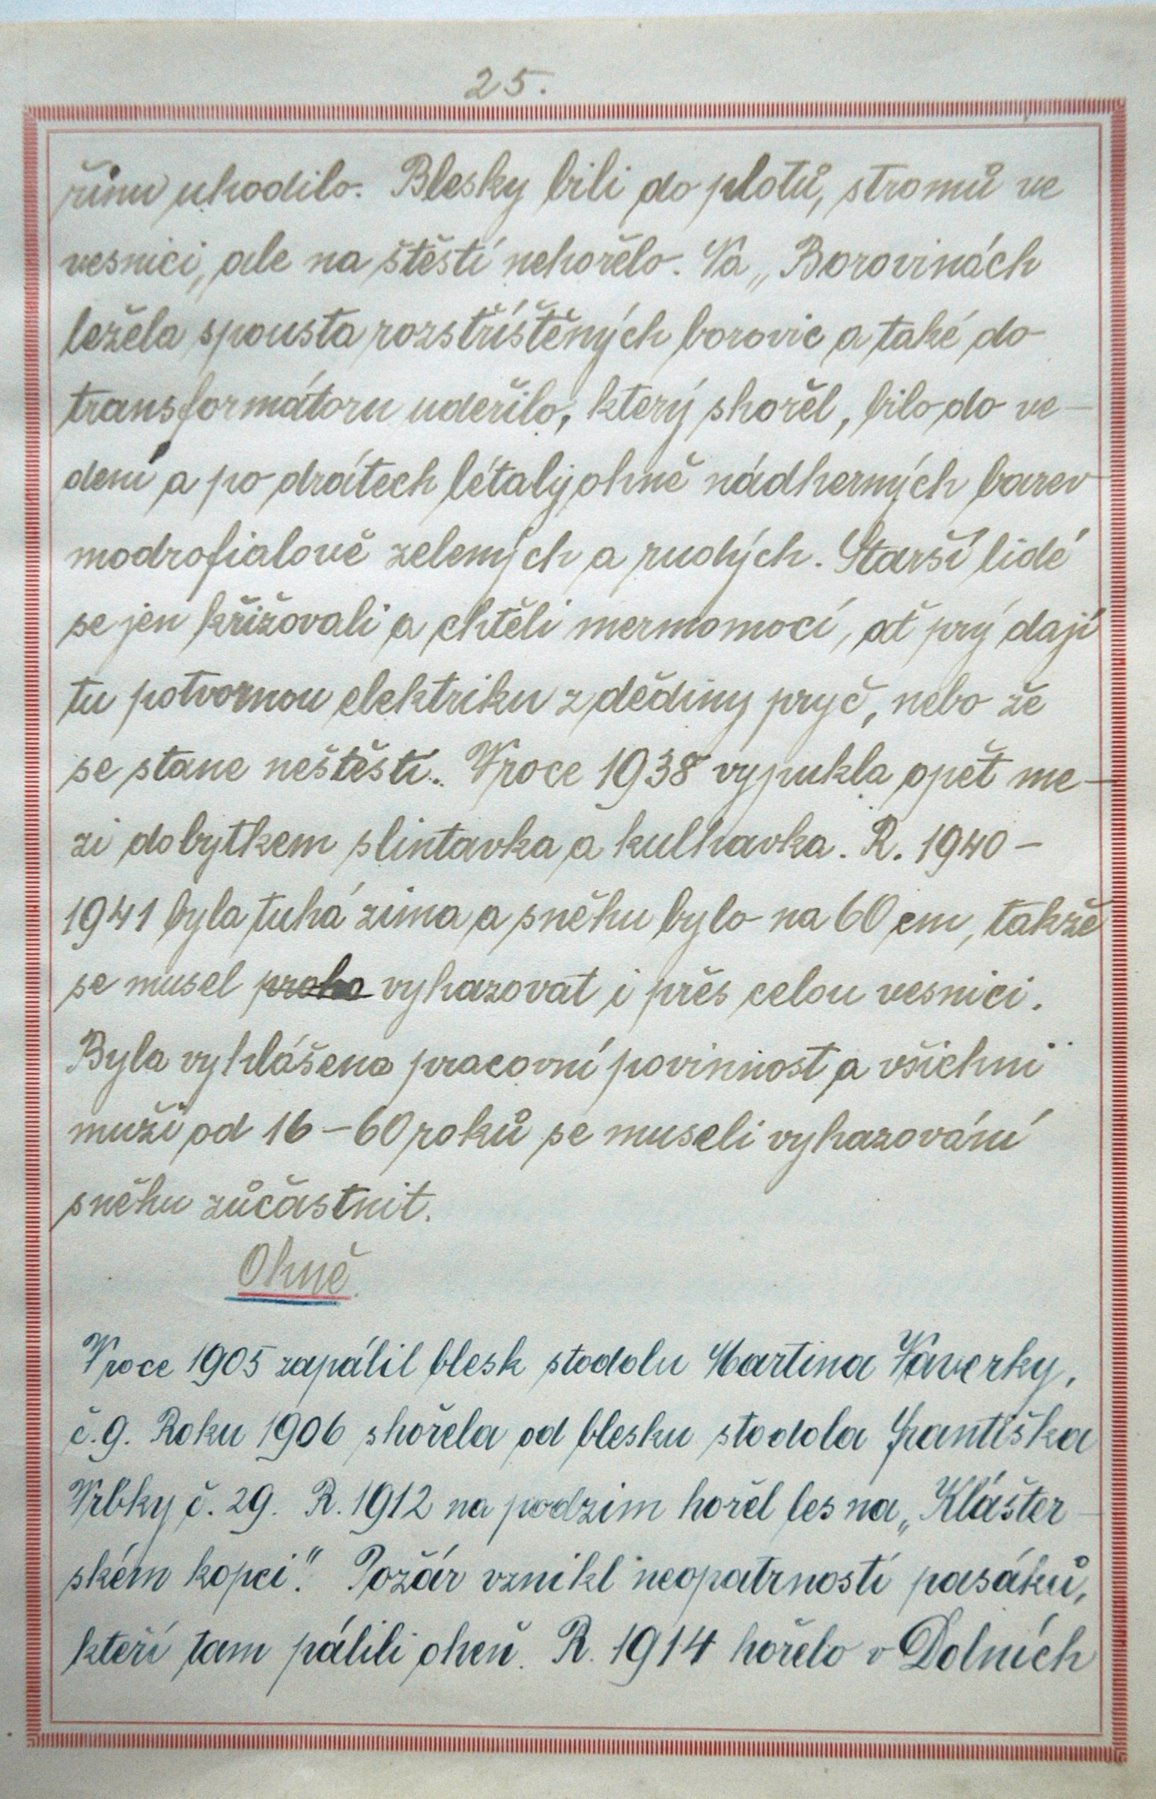 25.
řinu uhodilo. Blesky bili do plotů, stromů ve
vesnici, ale na štěstí nehořělo. Na „Borovinách
ležěla spousta rozstříštěných borovic a také do
transformátoru udeřilo, který shořěl, bilo do ve-
dení a po drátech létaly ohně nádherných barev
modrofialově zelených a rudých. Starší lidé
se jen křižovali a chtěli mermomocí, ať prý dají
tu potvornou elektriku z dědiny pryč, nebo že
se stane neštěstí. V roce 1938 vypukla opět me-
zi dobytkem slintavka a kulhavka. R. 1940-
1941 byla tuhá zima a sněhu bylo na 60 cm, takže
se musel vyhazovat i přěs celou vesnici.
Byla vyhlášena pracovní povinnost a všichni
muži od 16-60 roků se museli vyhazování
sněhu zůčastnit.
Ohně
V roce 1905 zapálil blesk stodolu Martina Vaverky,
č. 9. Roku 1906 shořela od blesku stodola Františka
Vrbky č. 29. R. 1912 na podzim hořel les na „Klášter-
ském kopci." Požár vznikl neopatrností pasáků,
kteří tam pálili oheň. R. 1914 hořelo v Dolních